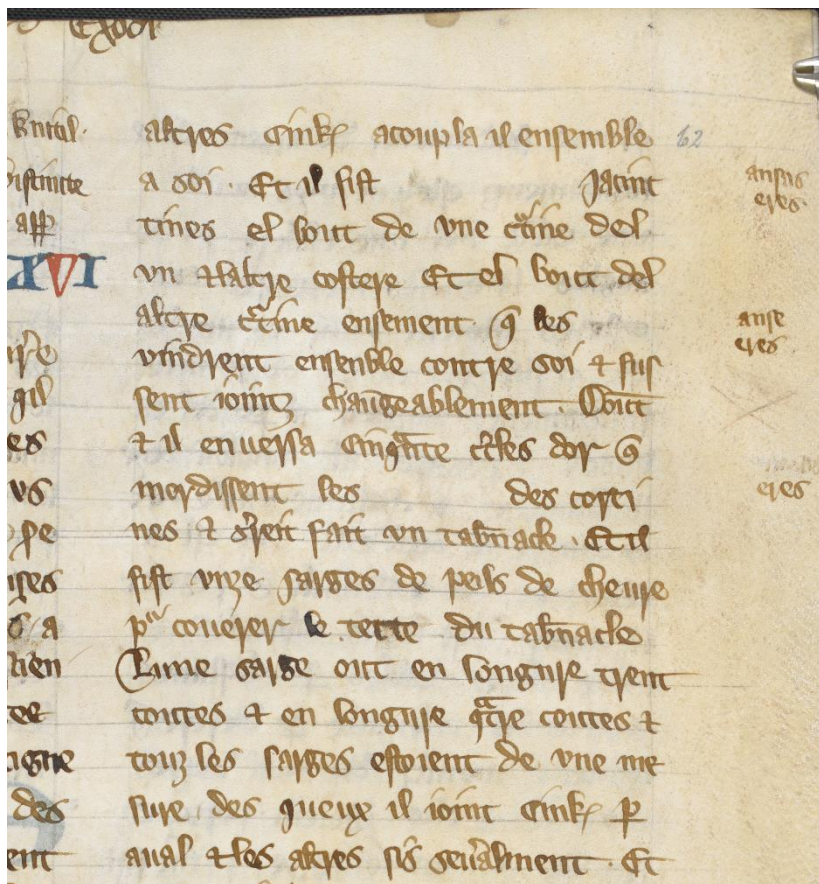 Exodi
altres Cink acoupla il ensemble 62
a soi . Et il fist Jacint
tines el bout de vne ctine del
vn & laltre costere Et el bout del
altre ctine ensement q les
vindrent ensenble contre soi & fus
sent iointz changeablement .
& il enuersa Cinqnte ccles dor q
mordissent les des corti
nes & sreit fait vn tabnacle . Et il
fist vnze sarges de peils de cheure
pr couerer le tette du tabnacle
Lune sarge out en longure trent
coutes & en longure qtre coutes &
touz les sarges estoient de vne me
sure . des queux il ioint Cink p
aual & les altres sis seualment . Et
knitil .
istincte
app
XVI
gil
es
vs
pe
a
lien
tee
igne
des
ent
ansus
eres
anse
eres
eres